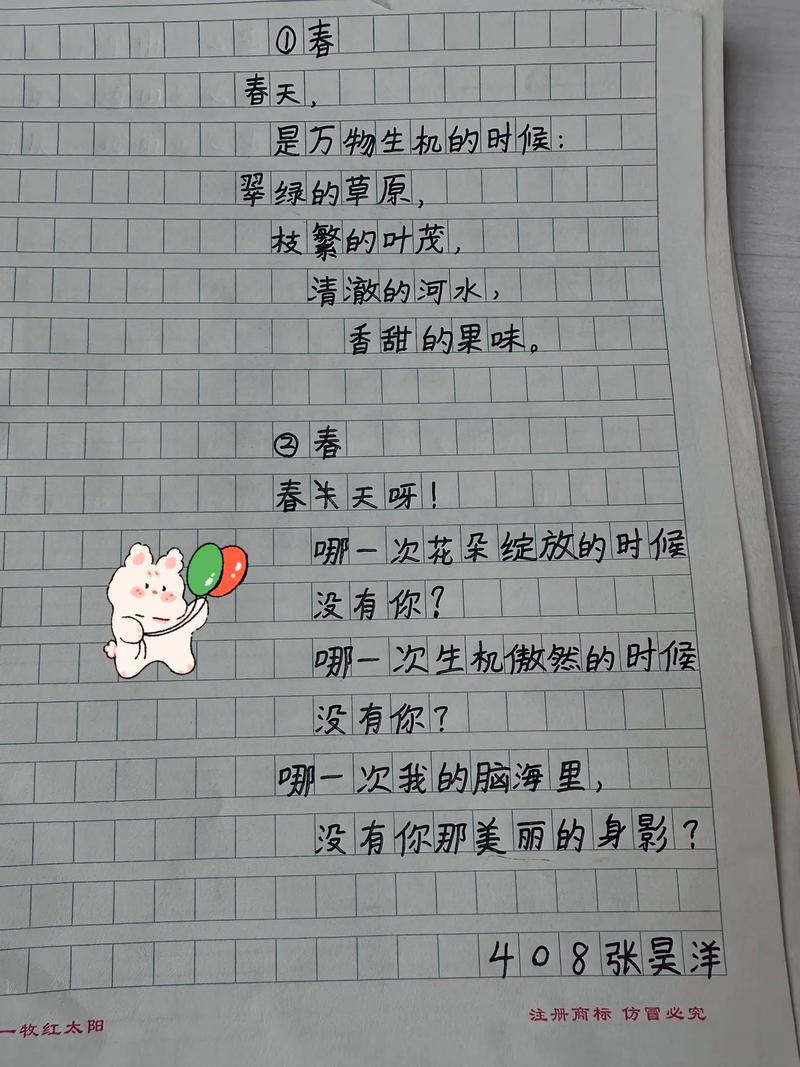 ①春
春天,
是万物生机的时候:
翠绿的草原,
枝繁的叶茂,
清澈的河水,
香甜的果味。
②春
春天呀!
哪一次花朵绽放的时候
没有你?
哪一次生机傲然的时候
没有你?
哪一次我的脑海里,
没有你那美丽的身影?
408张昊洋
一牧红太阳
注册商标 仿冒必究